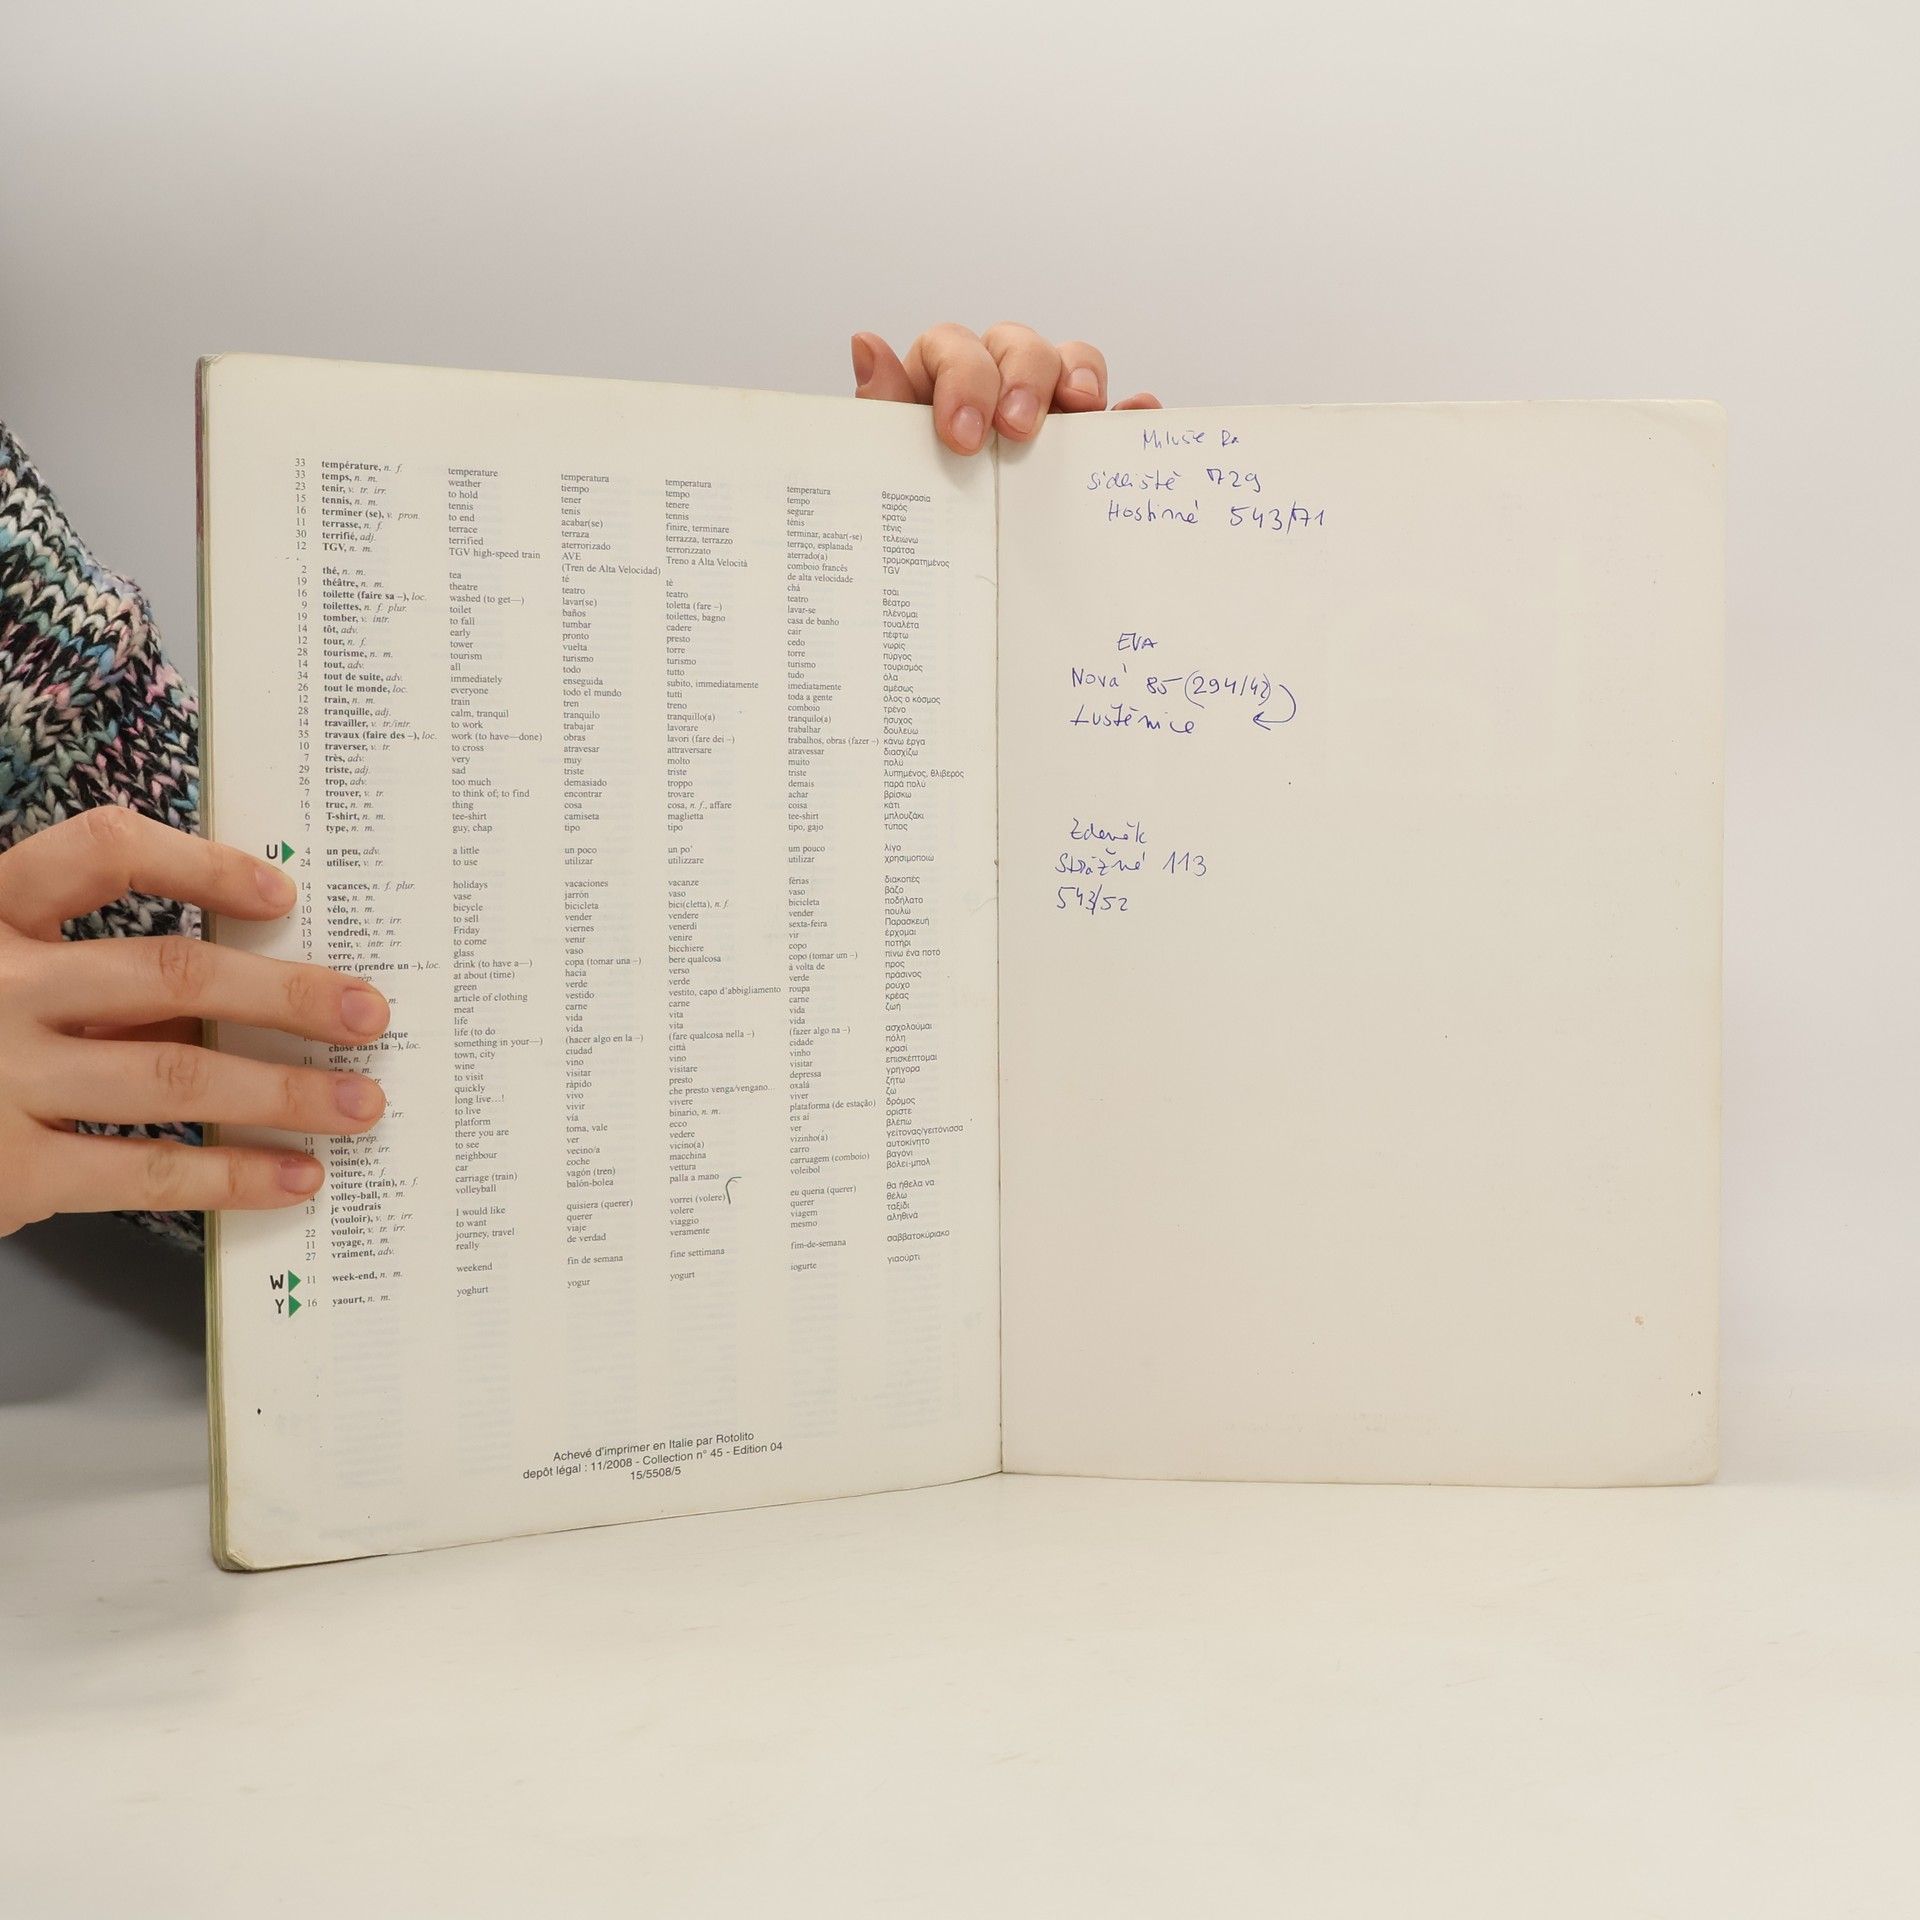 33 température, n. f. temperature temperatura temperatura temperatura θερμοκρασία
33 temps, n. m. weather tiempo tempo tempo καιρός
23 tenir, v. tr. irr. to hold tener tenere segurar κρατώ
15 tennis, n. m. tennis tenis tennis ténis τένις
16 terminer (se), v. pron. to end acabar(se) finire, terminare terminar, acabar(-se) τελειωνω
11 terrasse, n. f. terrace terraza terrazza, terrazzo terraço, esplanada ταράτσα
30 terrifié, adj. terrified aterrorizado terrorizzato aterrado(a) τρομοκρατημένος
12 TGV, n. m. TGV high-speed train AVE Treno a Alta Velocità comboio francês TGV
(Tren de Alta Velocidad) de alta velocidade
2 thé, n. m. tea té tè chá τσάι
19 théâtre, n. m. theatre teatro teatro teatro θέατρο
16 toilette (faire sa –), loc. washed (to get—) lavar(se) toletta (fare –) lavar-se πλένομαι
9 toilettes, n. f. plur. toilet baños toilettes, bagno casa de banho τουαλέτα
19 tomber, v. intr. to fall tumbar cadere cair πέφτω
14 tôt, adv. early pronto presto cedo νωρίς
12 tour, n. f. tower vuelta torre torre πύργος
28 tourisme, n. m. tourism turismo turismo turismo τουρισμός
14 tout, adv. all todo tutto tudo όλα
34 tout de suite, adv. immediately enseguida subito, immediatamente imediatamente αμέσως
26 tout le monde, loc. everyone todo el mundo tutti toda a gente όλος ο κόσμος
12 train, n. m. train tren treno comboio τρένο
28 tranquille, adj. calm, tranquil tranquilo tranquillo(a) tranquilo(a) ήσυχος
14 travailler, v. tr./intr. to work trabajar lavorare trabalhar δουλεύω
35 travaux (faire des –), loc. work (to have—done) obras lavori (fare dei –) trabalhos, obras (fazer –) κάνω έργα
10 traverser, v. tr. to cross atravesar attraversare atravessar διασχίζω
7 très, adv. very muy molto muito πολύ
29 triste, adj. sad triste triste triste λυπημένος, θλιβερός
26 trop, adv. too much demasiado troppo demais παρά πολύ
7 trouver, v. tr. to think of; to find encontrar trovare achar βρίσκω
16 truc, n. m. thing cosa cosa, n. f., affare coisa κάτι
6 T-shirt, n. m. tee-shirt camiseta maglietta tee-shirt μπλουζάκι
7 type, n. m. guy, chap tipo tipo tipo, gajo τύπος
U 4 un peu, adv. a little un poco un po' um pouco λίγο
24 utiliser, v. tr. to use utilizar utilizzare utilizar χρησιμοποιώ
14 vacances, n. f. plur. holidays vacaciones vacanze férias διακοπές
5 vase, n. m. vase jarrón vaso vaso βάζο
10 vélo, n. m. bicycle bicicleta bici(cletta), n. f. bicicleta ποδήλατο
24 vendre, v. tr. irr. to sell vender vendere vender πουλώ
13 vendredi, n. m. Friday viernes venerdì sexta-feira Παρασκευή
19 venir, v. intr. irr. to come venir venire vir έρχομαι
5 verre, n. m. glass vaso bicchiere copo ποτήρι
verre (prendre un –), loc. drink (to have a—) copa (tomar una –) bere qualcosa copo (tomar um –) πίνω ένα ποτό
prép. at about (time) hacia verso à volta de προς
green verde verde verde πράσινος
m. article of clothing vestido vestito, capo d'abbigliamento roupa ρούχο
meat carne carne carne κρέας
life vida vita vida ζωή
elque life (to do vida vita vida
chose dans la –), loc. something in your—) (hacer algo en la –) (fare qualcosa nella –) (fazer algo na –) ασχολούμαι
11 ville, n. f. town, city ciudad città cidade πόλη
n. m. wine vino vino vinho κρασί
to visit visitar visitare visitar επισκέπτομαι
quickly rápido presto depressa γρήγορα
v. long live...! vivo che presto venga/vengano... oxalá ζήτω
irr. to live vivir vivere viver ζω
platform vía binario, n. m. plataforma (de estação) δρόμος
11 voilà, prép. there you are toma, vale ecco eis aí ορίστε
14 voir, v. tr. irr. to see ver vedere ver βλέπω
voisin(e), n. neighbour vecino/a vicino(a) vizinho(a) γείτονας/γειτόνισσα
voiture, n. f. car coche macchina carro αυτοκίνητο
voiture (train), n. f. carriage (train) vagón (tren) vettura carruagem (comboio) βαγόνι
4 volley-ball, n. m. volleyball balón-bolea palla a mano voleibol βόλεϊ-μπολ
13 je voudrais
(vouloir), v. tr. irr. I would like quisiera (querer) vorrei (volere) eu queria (querer) θα ήθελα να
22 vouloir, v. tr. irr. to want querer volere querer θέλω
11 voyage, n. m. journey, travel viaje viaggio viagem ταξίδι
27 vraiment, adv. really de verdad veramente mesmo αληθινά
W 11 week-end, n. m. weekend fin de semana fine settimana fim-de-semana σαββατοκύριακο
Y 16 yaourt, n. m. yoghurt yogur yogurt iogurte γιαούρτι
Achevé d'imprimer en Italie par Rotolito
depôt légal : 11/2008 - Collection n° 45 - Edition 04
15/5508/5
Miluše Ra
sídliště 729
Hostinné 543/71
EVA
Nová 85 (294/42)
Luštěnice
Zdeněk
Strážné 113
543/52